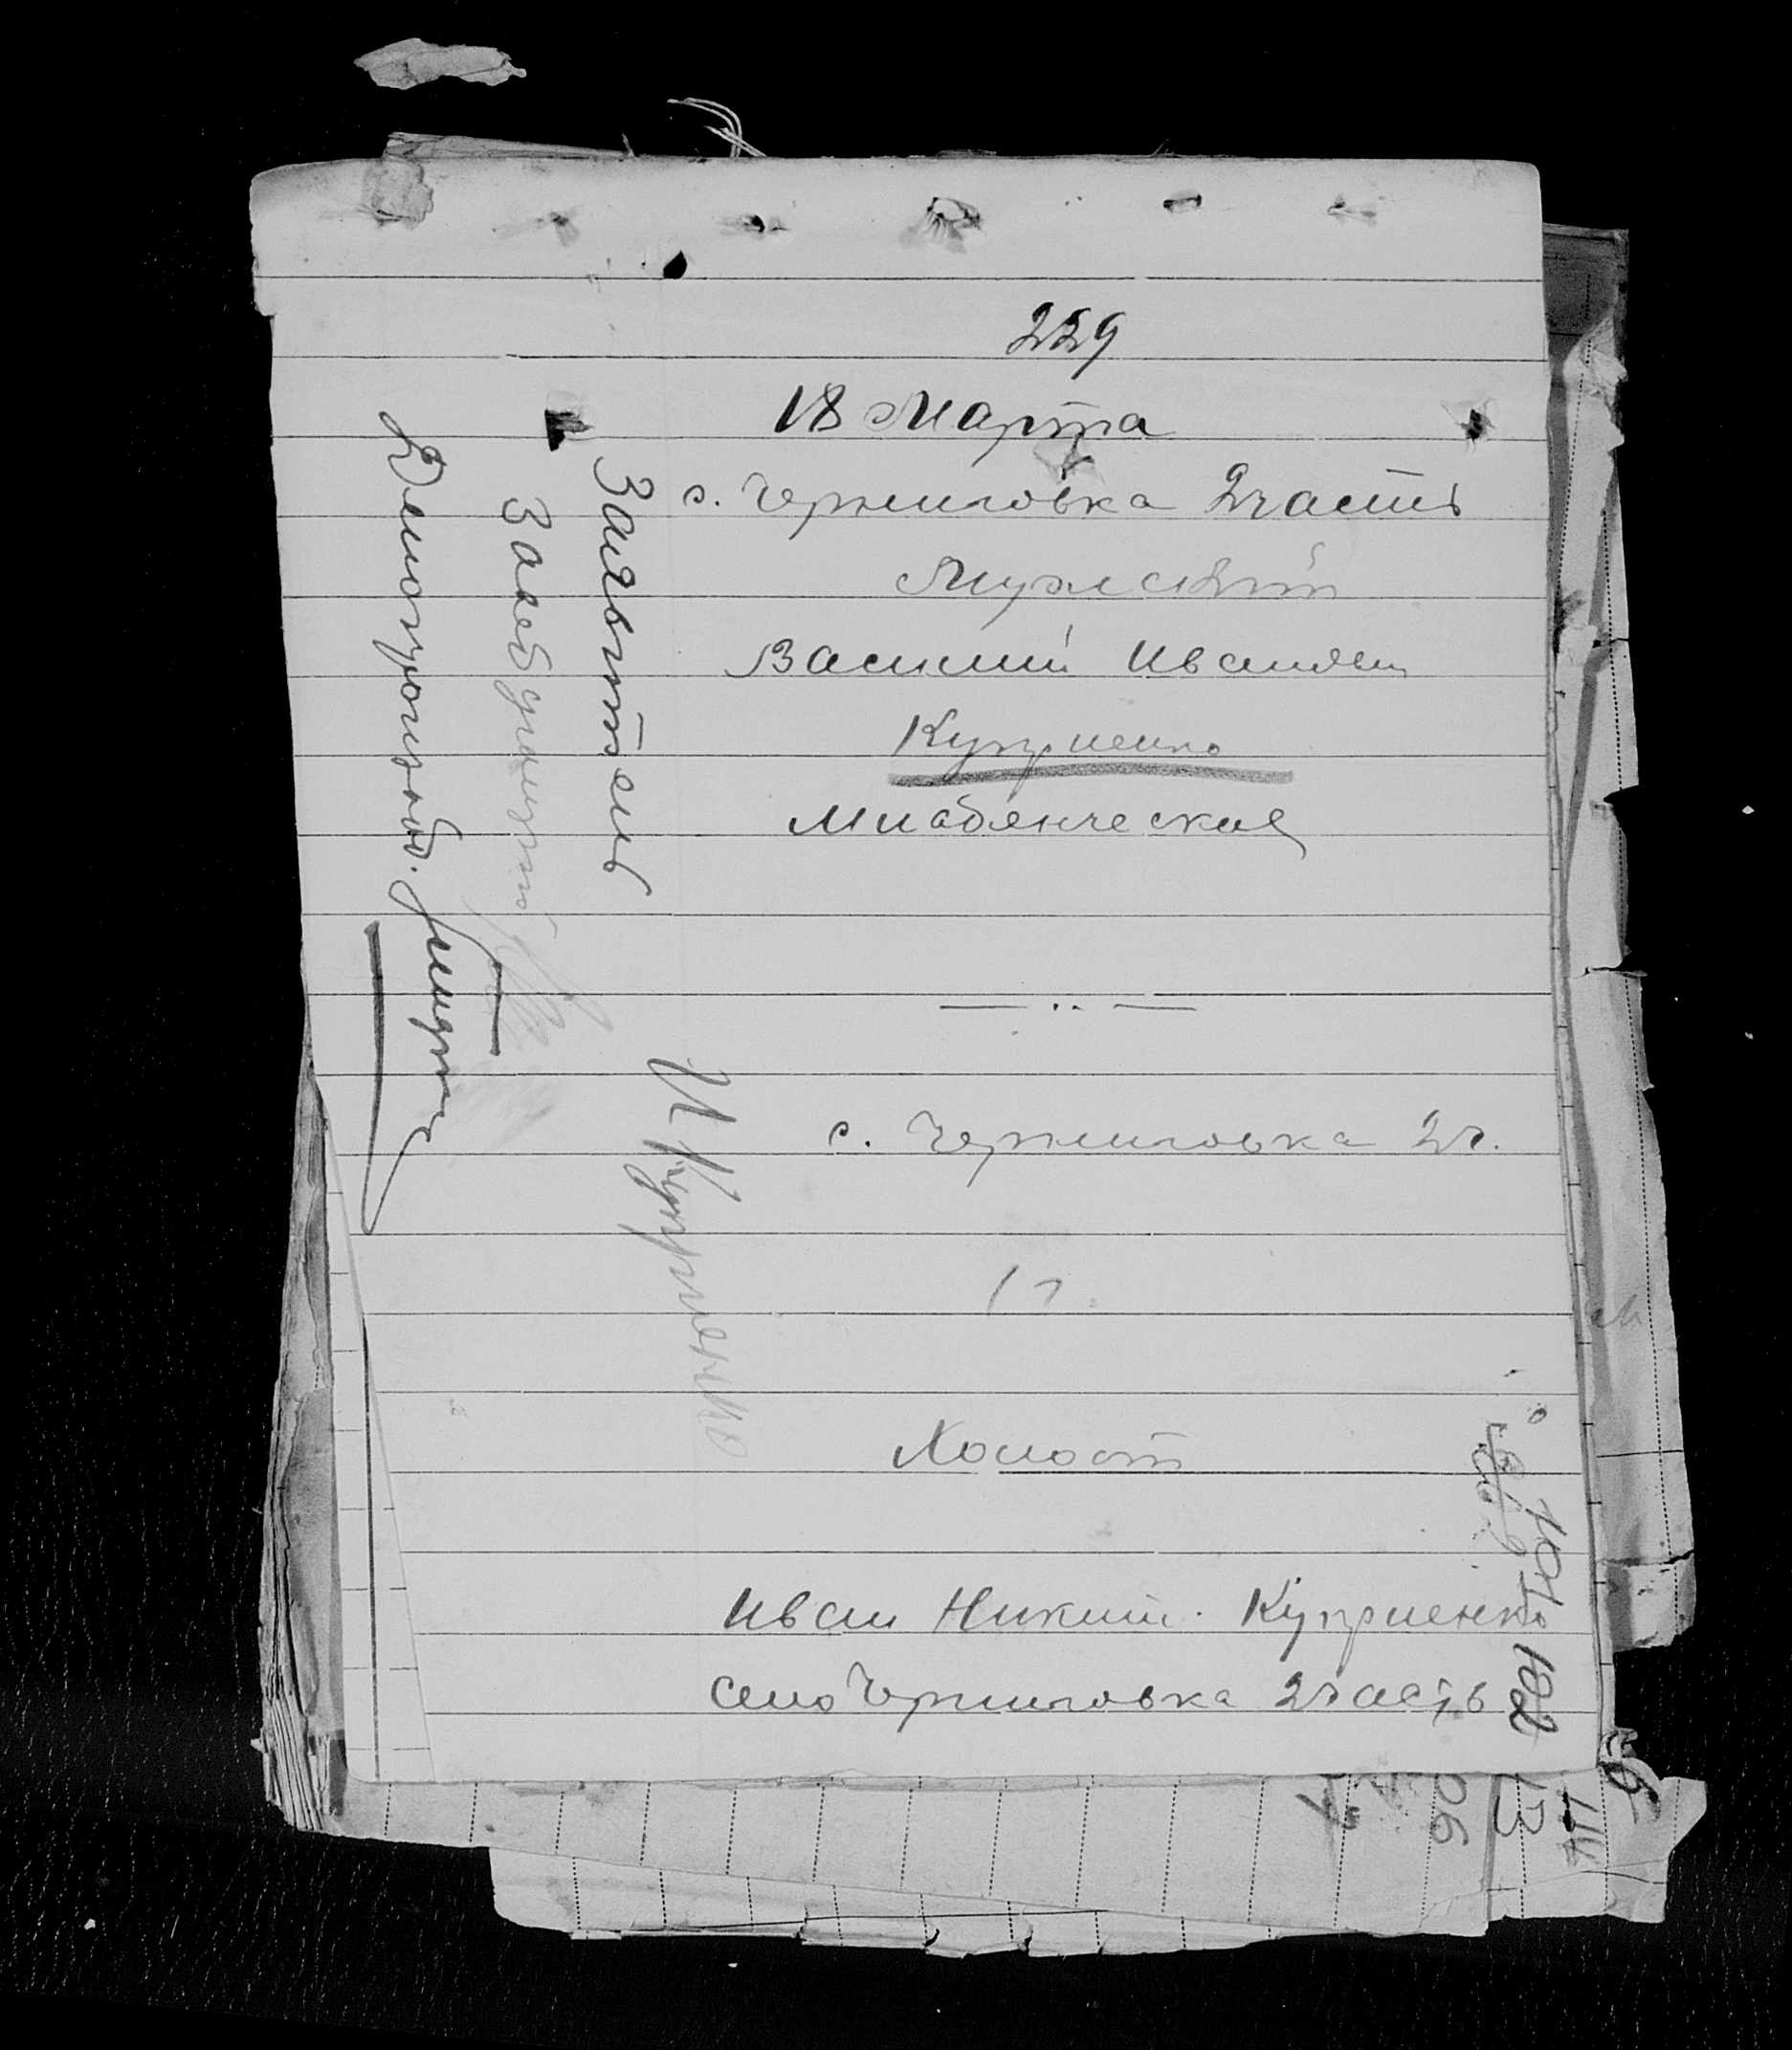 229
18 Марта
с. Черниговка 2 часть
Мужской
Василий Иванович
Куприенко
Младенческая
с. Черниговка 2 ч.
1 г.
Холост
Иван Никит. Куприенко
Село Черниговка 2 часть
Заявитель
И Куприенко
Делопроизвод.
101
102